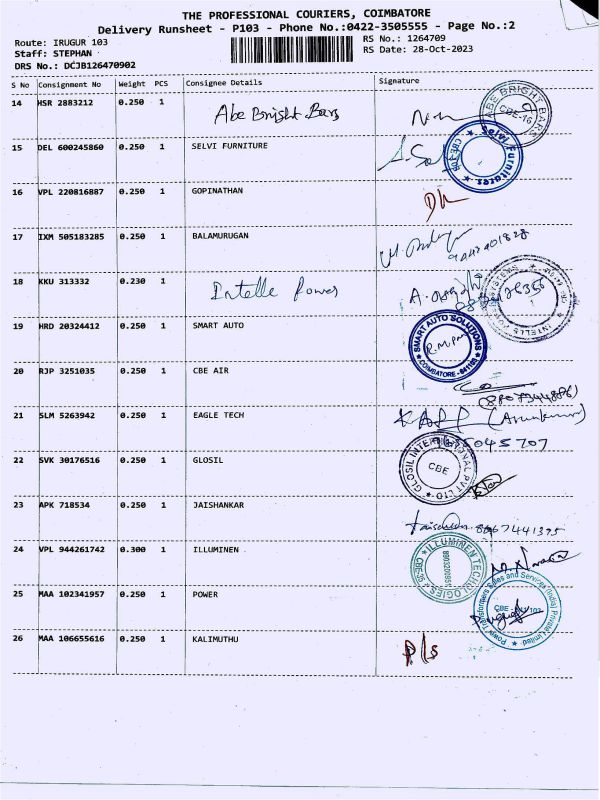 THE PROFESSIONAL COURIERS, COIMBATORE
Delivery Runsheet - P103 - Phone No.:0422-3505555 - Page No.:2
Route: IRUGUR 103
RS No.: 1264709
Staff: STEPHAN
RS Date: 28-Oct-2023
DRS No.: DCJB126470902
S No Consignment No Weight PCS Consignee Details Signature
14 HSR 2883212 0.250 1 Abe Bright Bars
ABE BRIGHT BARS CBE-16
15 DEL 600245860 0.250 1 SELVI FURNITURE
Selvi Furnitures
16 VPL 220816887 0.250 1 GOPINATHAN
17 IXM 505183285 0.250 1 BALAMURUGAN
18 KKU 313332 0.230 1 Intelle Power
19 HRD 20324412 0.250 1 SMART AUTO
SMART AUTO SOLUTIONS COIMBATORE
20 RJP 3251035 0.250 1 CBE AIR
21 SLM 5263942 0.250 1 EAGLE TECH
(Arunkumar)
22 SVK 30176516 0.250 1 GLOSIL
GLOSIL INTERNATIONAL PVT LTD CBE
23 APK 718534 0.250 1 JAISHANKAR
8667441395
24 VPL 944261742 0.300 1 ILLUMINEN
25 MAA 102341957 0.250 1 POWER
Transformers Sales and Services (India) Private Limited
26 MAA 106655616 0.250 1 KALIMUTHU